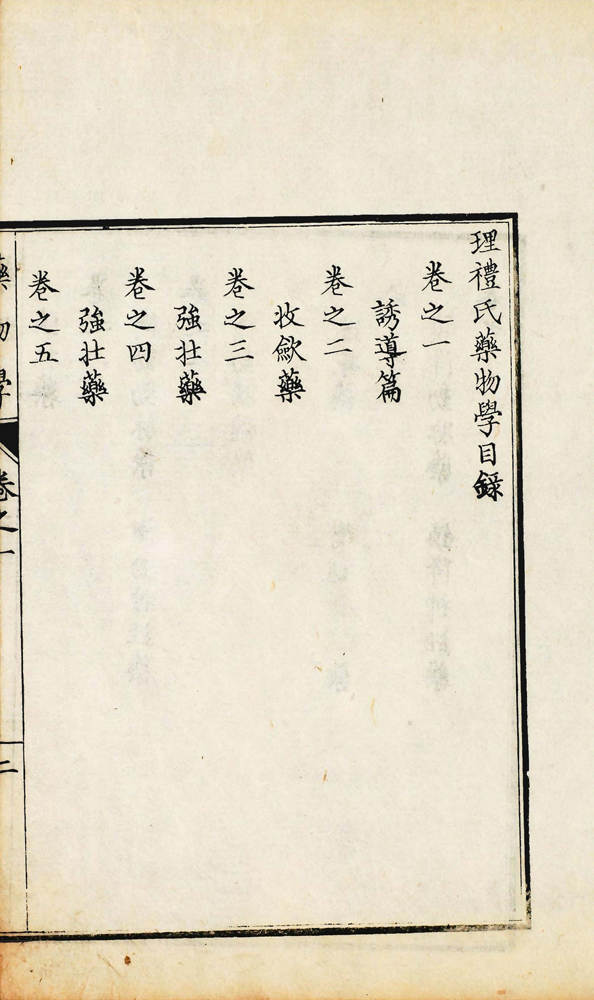 理禮氏藥物學目錄
卷之一
誘導篇
卷之二
收斂藥
卷之三
強壯藥
卷之四
強壯藥
卷之五
藥物學
卷之一
二